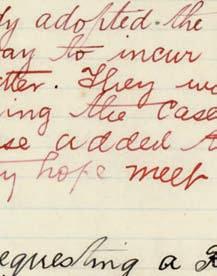 dy adopted the
ay to incur
tter. They w
ing the case
se added
y hope meet
equesting a R